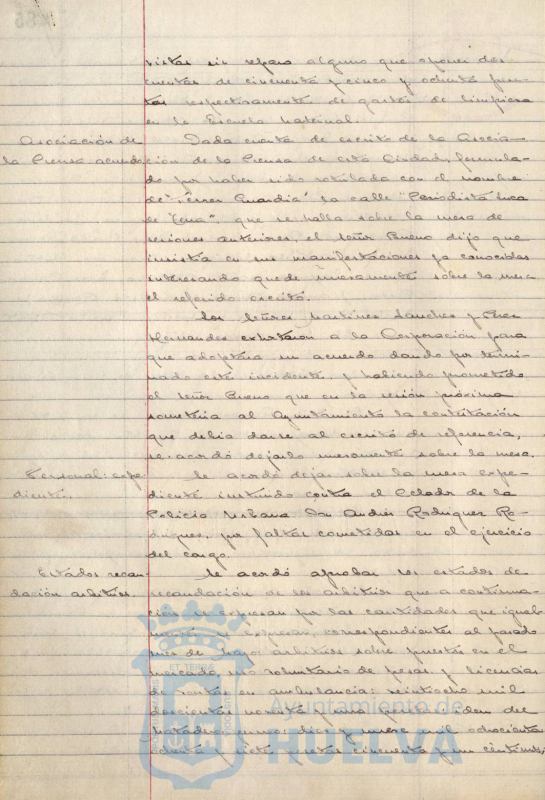 vistas sin reparo alguno que oponer dos
cuentas de cincuenta y cinco y ochenta pese-
tas respectivamente de gastos de limpieza
en la Escuela maternal.
Asociación de
la Prensa acuerdo
Dada cuenta de escrito de la Asocia-
ción de la Prensa de esta Ciudad, formula-
do por haber sido rotulada con el nombre
de "Ferrer Guardia" la calle "Periodista Luca
de Tena", que se halla sobre la mesa de
sesiones anteriores, el señor Bueno dijo que
insistía en sus manifestaciones ya conocidas
interesando quede nuevamente sobre la mesa
el referido escrito.
Los señores Martínez Sánchez y Pérez
Hernández exhortaron a la Corporación para
que adoptara un acuerdo dando por termi-
nado este incidente, y habiendo prometido
el señor Bueno que en la sesión próxima
sometería al Ayuntamiento la contestación
que debía darse al escrito de referencia,
se acordó dejarlo nuevamente sobre la mesa.
Personal: expe-
diente.
Se acordó dejar sobre la mesa expe-
diente instruido contra el Celador de la
Policía Urbana Don Andrés Rodríguez Ro-
dríguez, por faltas cometidas en el ejercicio
del cargo.
Estados recau-
dación arbitrios
Se acordó aprobar los estados de
recaudación de los arbitrios que a continua-
ción se expresan por las cantidades que igual-
mente se expresan, correspondientes al pasado
mes de mayo: arbitrios sobre puestos en el
mercado, uso voluntario de pesas y licencias
de ventas en ambulancia: veintiocho mil
doscientas noventa y una pesetas; idem del
matadero: diez y nueve mil ochocientas
ochenta y siete pesetas cincuenta y un céntimos;
ET TERRÆ
Ayuntamiento de
HUELVA